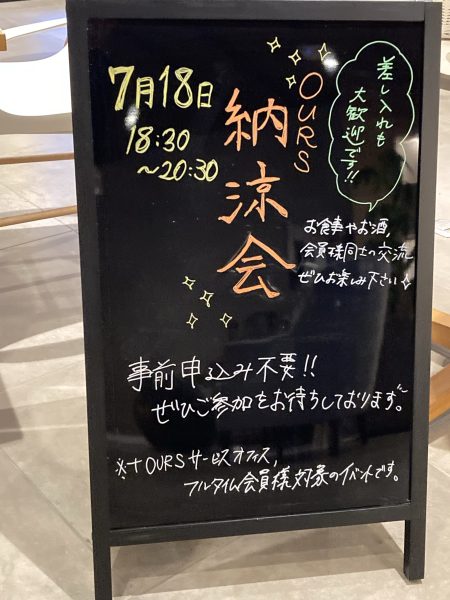 7月18日
18:30
〜20:30
OURS
納涼会
差し入れも
大歓迎です!!
お食事やお酒,
会員様同士の交流
ぜひお楽しみ下さい
事前申込み不要!!
ぜひご参加をお待ちしております。
※+OURSサービスオフィス,
フルタイム会員様対象のイベントです。